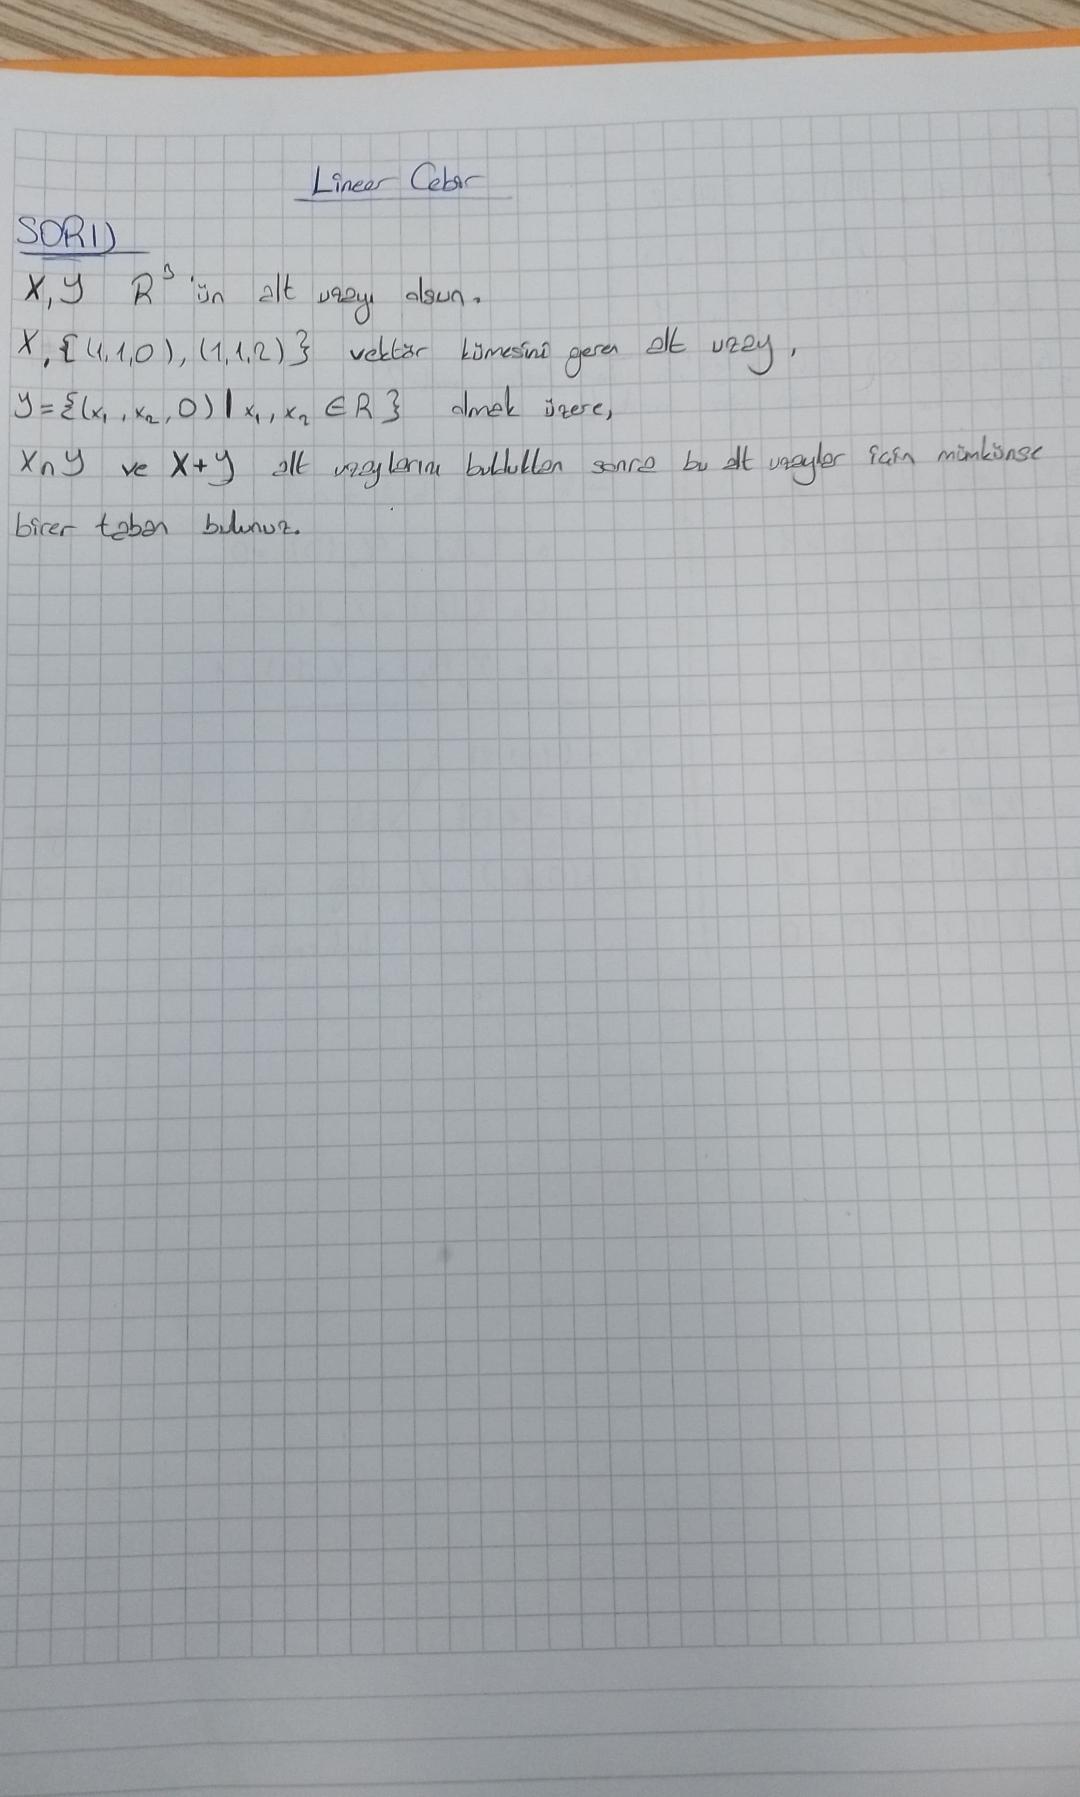 Lineer Cebir
SORI)
X, Y R³'ün alt uzayı olsun.
X, {(1,1,0), (1,1,2)} vektör kümesini geren alt uzay,
Y = {(x₁, x₂, 0) | x₁, x₂ ∈ R} olmak üzere,
X∩Y ve X+Y alt uzaylarını bulduktan sonra bu alt uzaylar için mümkünse
birer taban bulunuz.